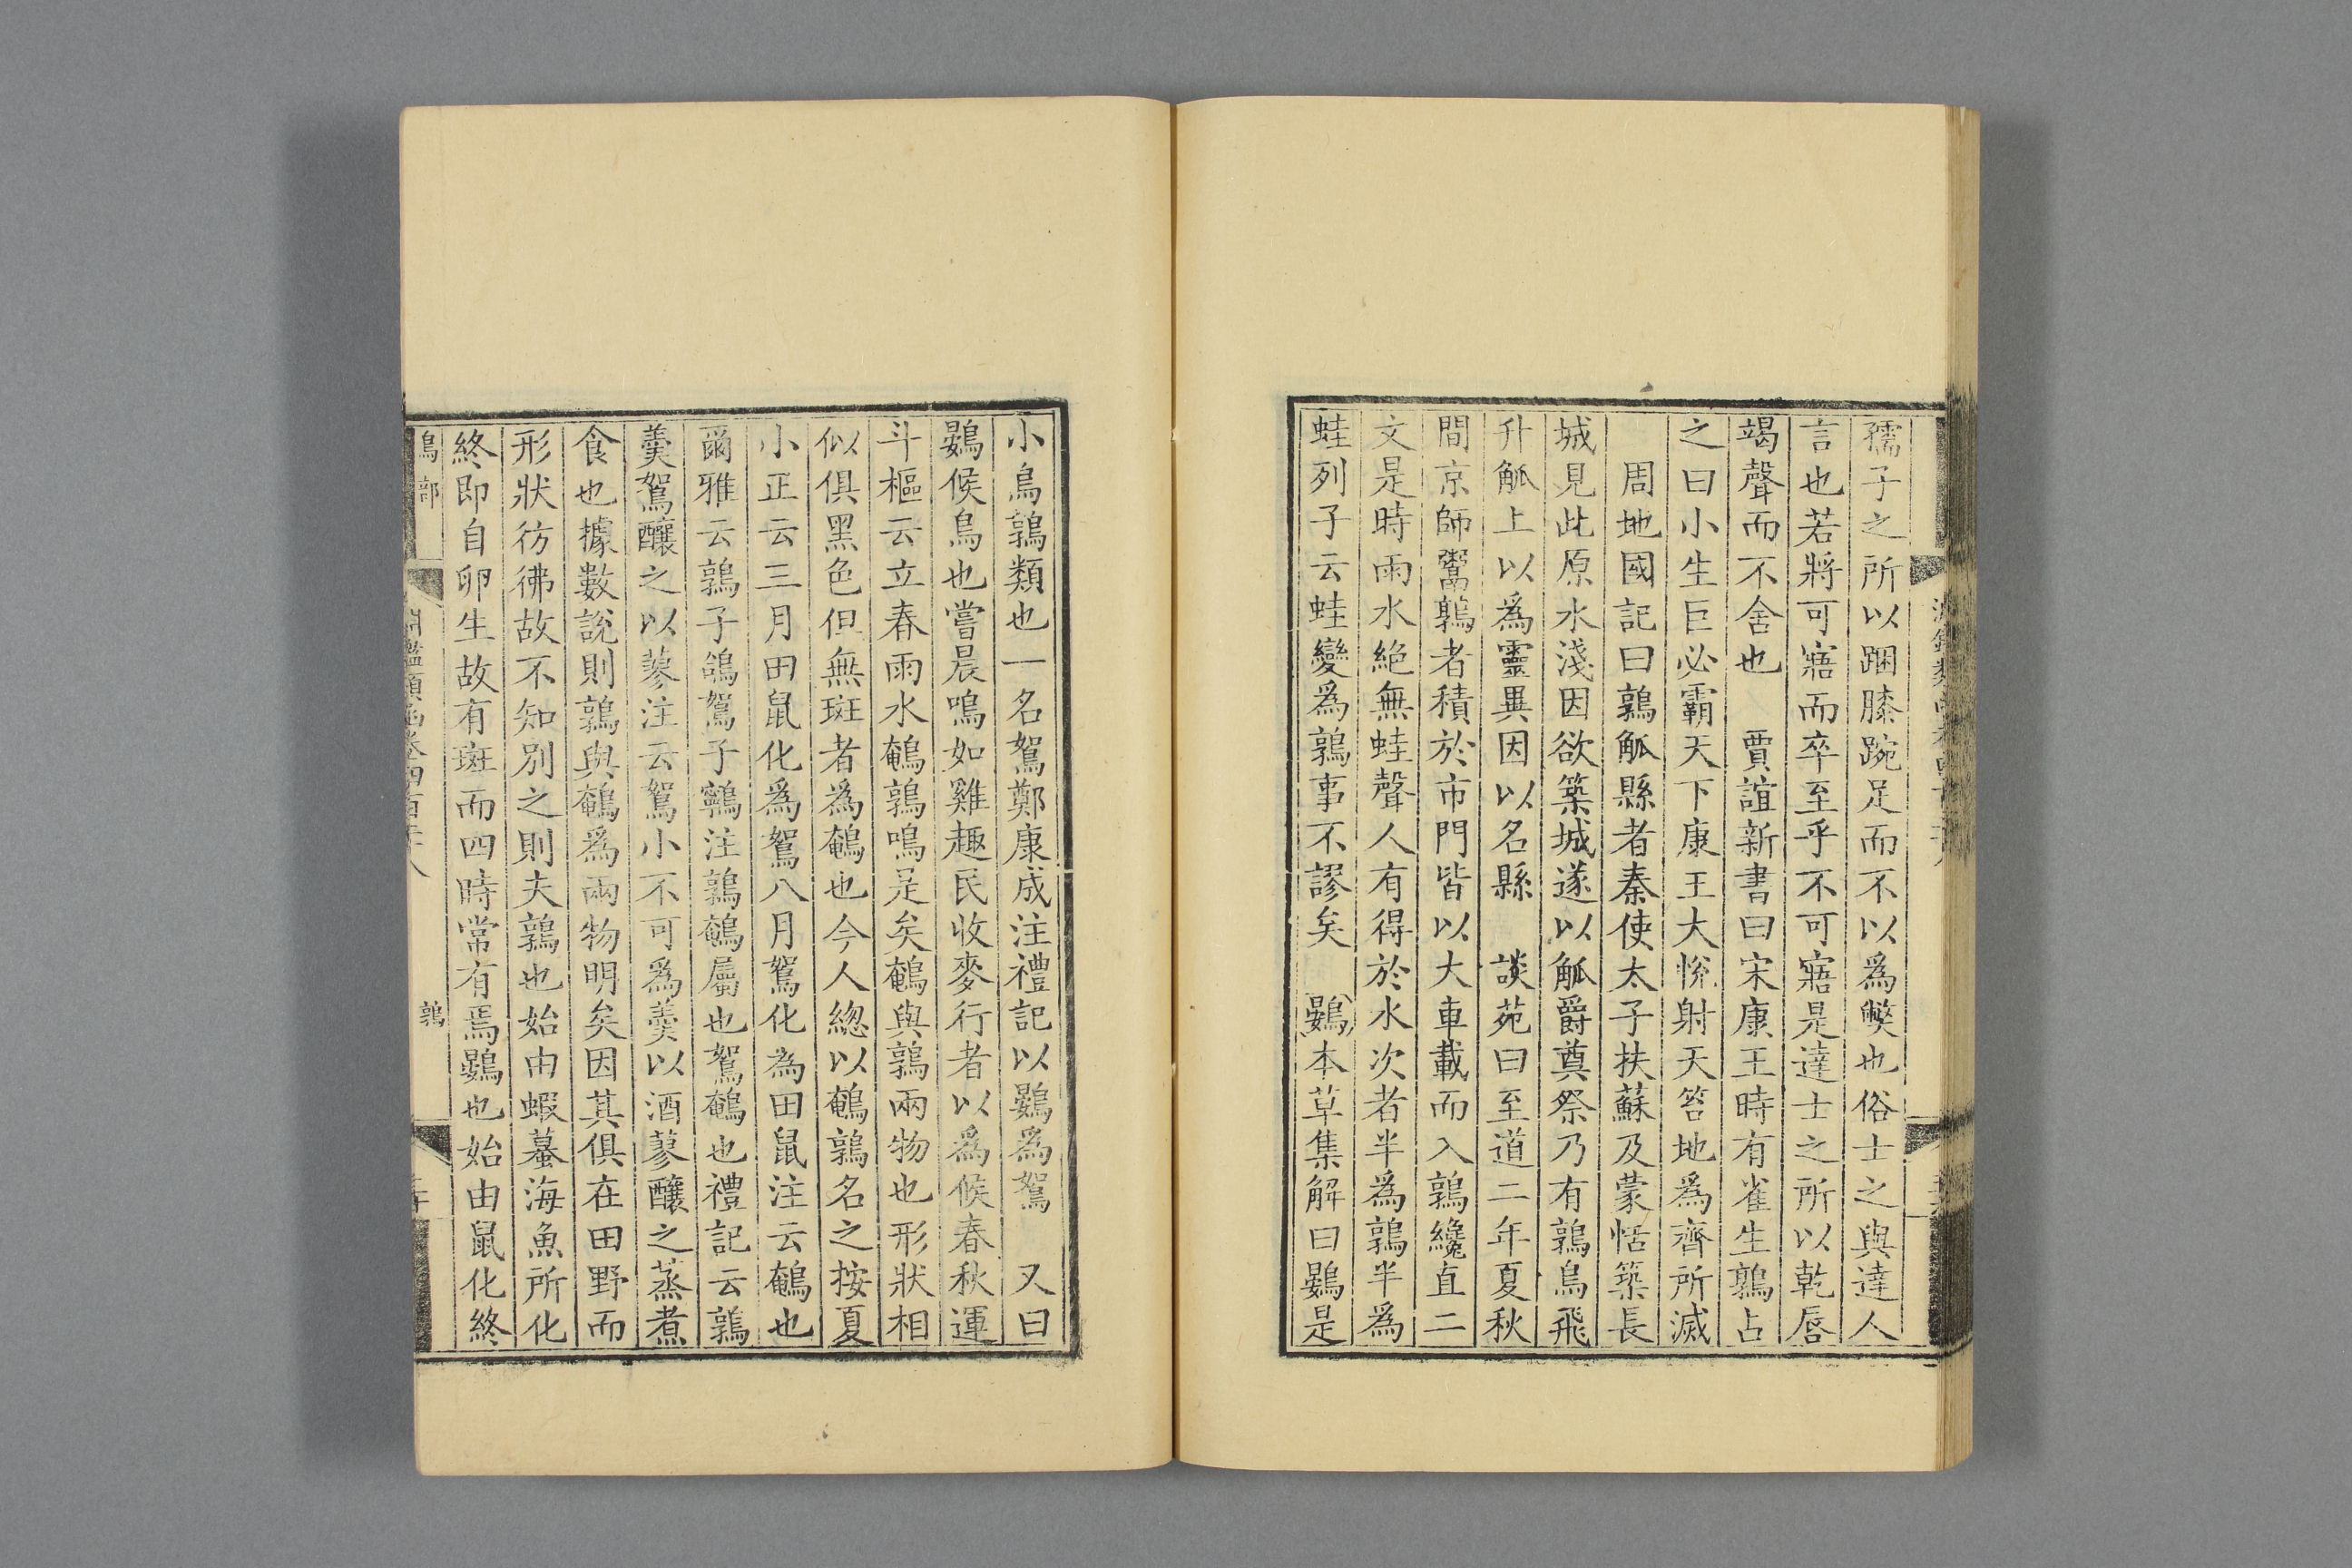 孺子之所以跼膝踠足而不以爲弊也俗士之與達人
言也若將可寤而卒至乎不可寤是達士之所以乾唇
竭聲而不舍也　賈誼新書曰宋康王時有雀生鶉占
之曰小生巨必霸天下康王大悅射天笞地爲齊所滅
周地國記曰鶉觚縣者秦使太子扶蘇及蒙恬築長
城見此原水淺因欲築城遂以觚爵奠祭乃有鶉鳥飛
升觚上以爲靈異因以名縣　談苑曰至道二年夏秋
間京師鬻鶉者積於市門皆以大車載而入鶉纔直二
文是時雨水絕無蛙聲人有得於水次者半爲鶉半爲
蛙列子云蛙變爲鶉事不謬矣　鷃本草集解曰鷃是
小鳥鶉類也一名鴽鄭康成注禮記以鷃為鴽　又曰
鷃候鳥也嘗晨鳴如雞趣民收麥行者以爲候春秋運
斗樞云立春雨水鵪鶉鳴是矣鵪與鶉兩物也形狀相
似俱黑色但無斑者為鵪也今人總以鵪鶉名之按夏
小正云三月田鼠化爲鴽八月鴽化為田鼠注云鵪也
爾雅云鶉子鳼鴽子鸋注鶉鵪屬也鴽鵪也禮記云鶉
羹鴽釀之以蓼注云鴽小不可爲羹以酒蓼釀之蒸煮
食也據數說則鶉與鵪爲兩物明矣因其俱在田野而
形狀彷彿故不知別之則夫鶉也始由蝦蟇海魚所化
終即自卵生故有斑而四時常有焉鷃也始由鼠化終
鳥部
淵鑑類函卷四百二十八
鶉